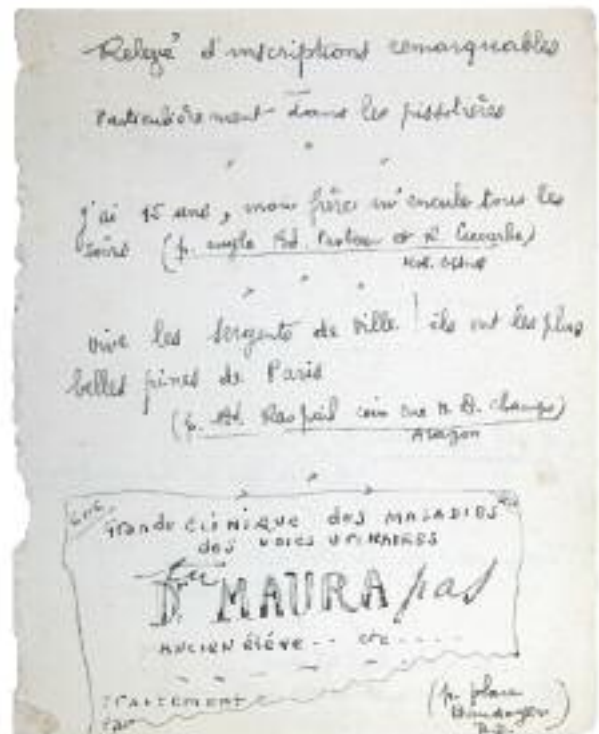 Relevé d'inscriptions remarquables
particulièrement dans les pissotières
j'ai 15 ans, mon frère m'encule tous les
soirs (p. angle Bd. Pasteur et R.
vive les sergents de ville ! ils ont les plus
belles pines de Paris
(p. Bd. Raspail coin rue N. D. Champs)
Aragon
Grande CLINIQUE des MALADIES
des VOIES URINAIRES
tu
Dr MAURA pas
ANCIEN élève -- etc ----
TRAITEMENT
(p. place